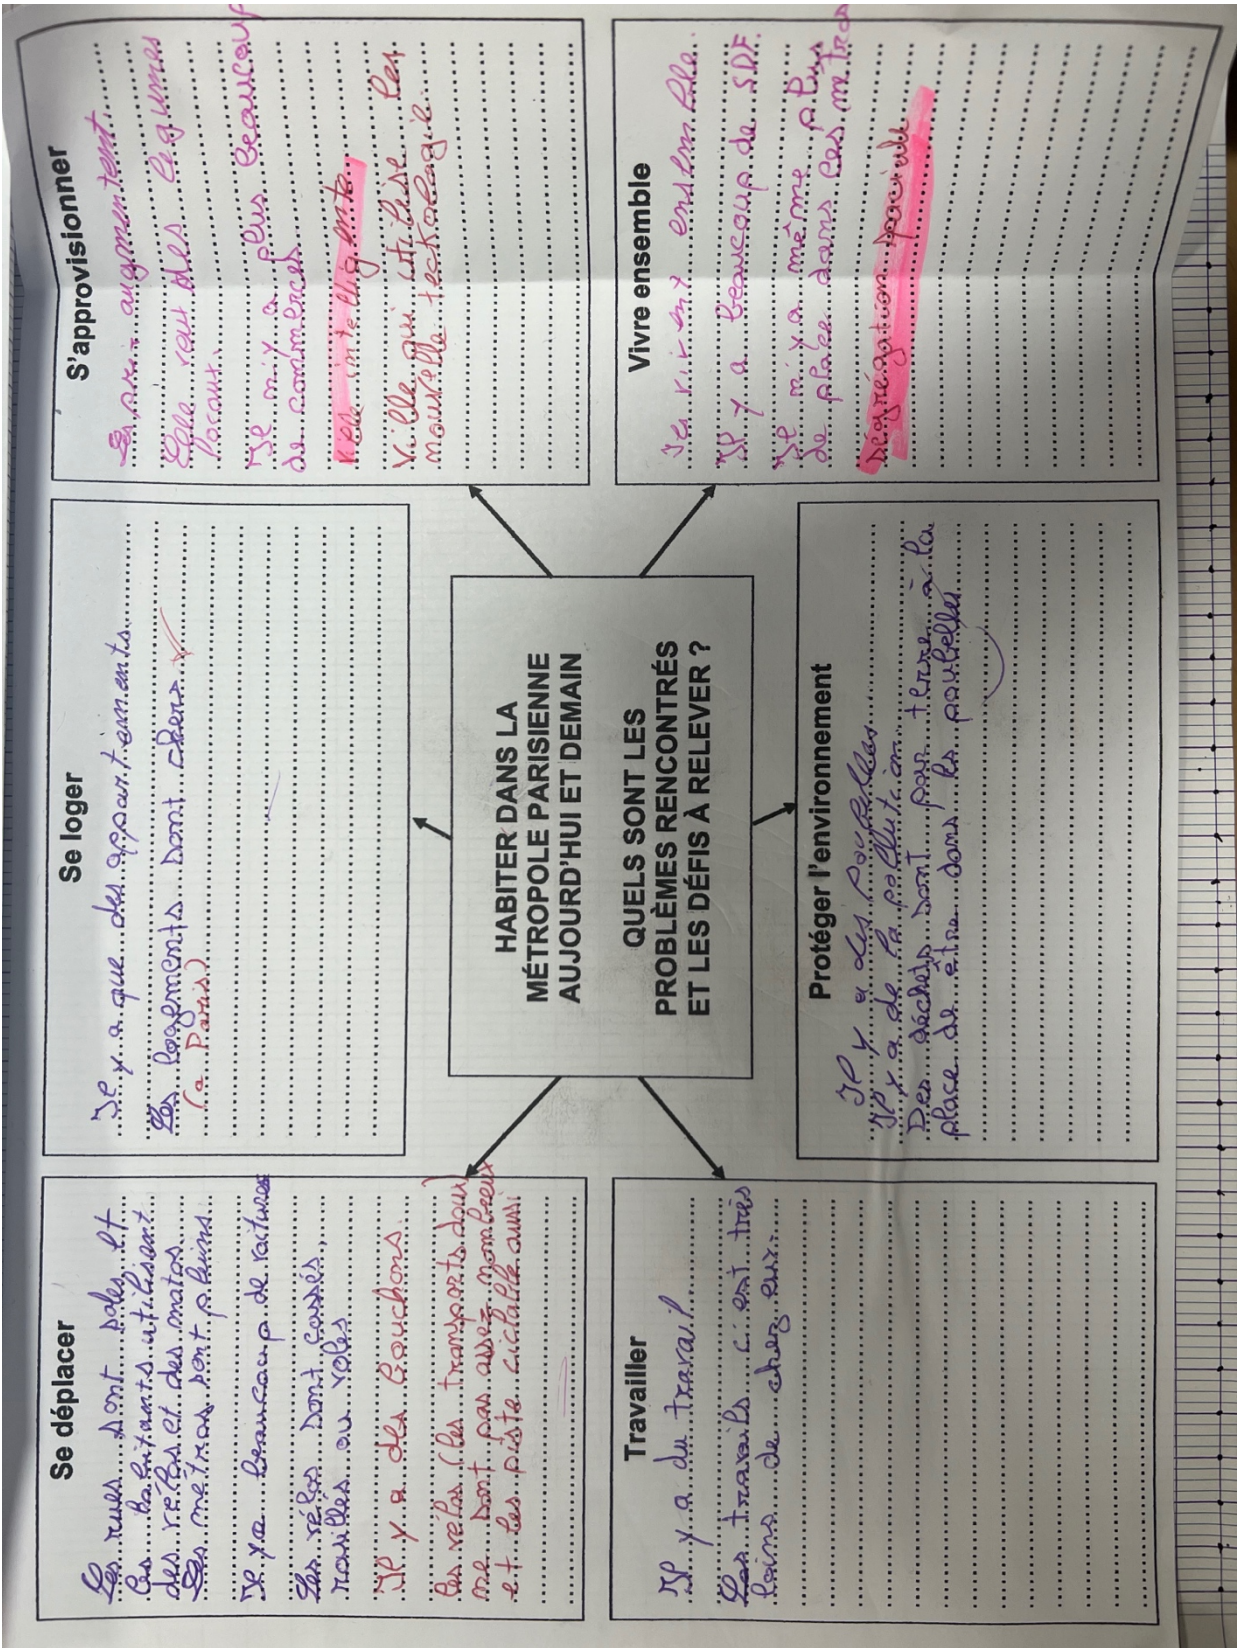 Se déplacer
Les rues sont sales et
les habitants utilisent
des vélos et des motos.
Les métros sont pleins.
Il y a beaucoup de voitures
Les vélos sont cassés,
rouillés ou volés
Il y a des bouchons.
les vélos (les transports doux)
ne sont pas assez nombreux
et les piste ciclable aussi
Se loger
Il y a que des appartements.
Les logements sont chers
(a Paris)
S'approvisionner
Les prix augmentent.
Elle veut des légumes
locaux.
Il n'y a plus beaucoup
de commerces
intelligente
Ville qui utilise les
nouvelle technologie.
HABITER DANS LA
MÉTROPOLE PARISIENNE
AUJOURD'HUI ET DEMAIN
QUELS SONT LES
PROBLÈMES RENCONTRÉS
ET LES DÉFIS À RELEVER ?
Travailler
Il y a du travail
Les travails c'est très
loins de chez eux.
Protéger l'environnement
Il y a des poubelles
Il y a de la pollution.
Des déchets sont par terre à la
place de être dans les poubelles
Vivre ensemble
vivent ensemble.
Il y a beaucoup de SDF.
Il n'y a même plus
de place dans les métros
sociale